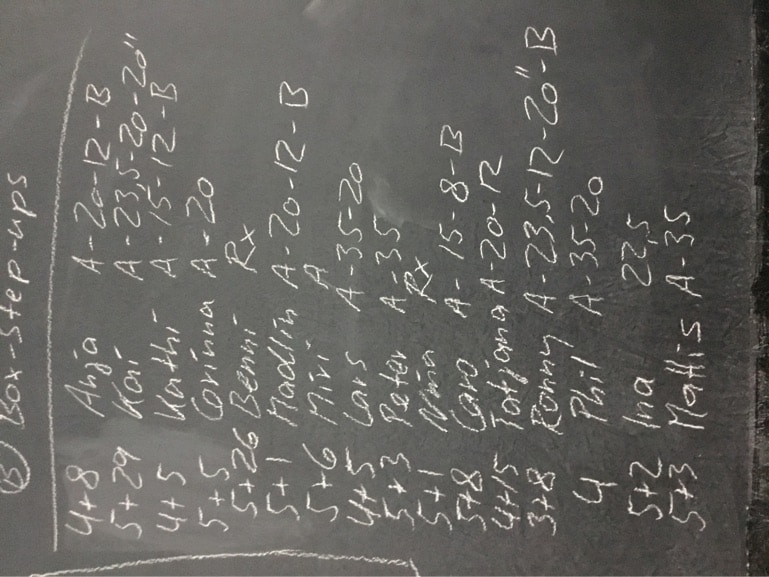 B Box-Step-ups
4+8 Anja A-20-12-B
5+29 Kai A-23,5-20-20"
4+5 Kathi A-15-12-B
5+5 Corinna A-20
5+26 Benni Rx
5+1 Madlin A-20-12-B
5+6 Miri A
4+5 Lars A-35-20
5+3 Peter A-35
5+1 Nina Rx
5+8 Caro A-15-8-B
4+15 Tatjana A-20-12
3+8 Ronny A-23,5-12-20"-B
4 Phil A-35-20
5+2 Ina 22,5
5+3 Mattis A-35